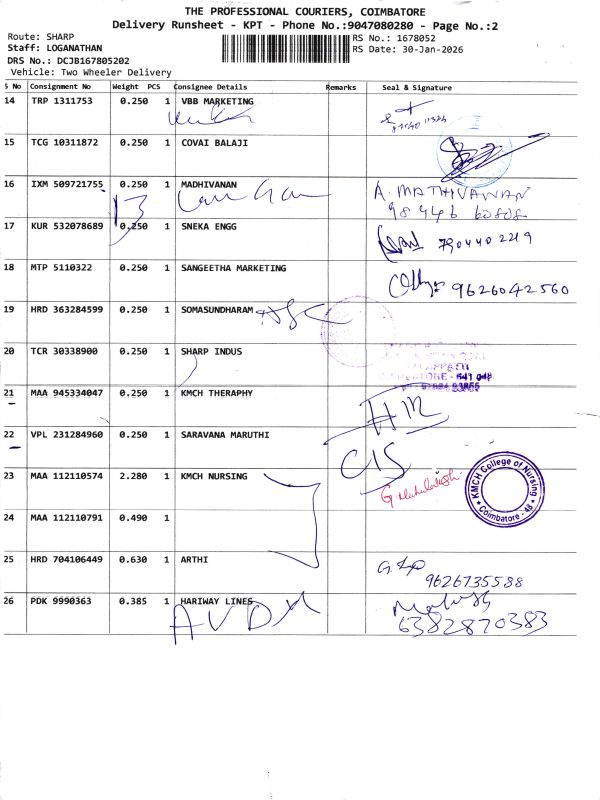 THE PROFESSIONAL COURIERS, COIMBATORE
Delivery Runsheet - KPT - Phone No.:9047080280 - Page No.:2
Route: SHARP
Staff: LOGANATHAN
DRS No.: DCJB167805202
Vehicle: Two Wheeler Delivery
RS No.: 1678052
RS Date: 30-Jan-2026
S No Consignment No Weight PCS Consignee Details Remarks Seal & Signature
14 TRP 1311753 0.250 1 VBB MARKETING
15 TCG 10311872 0.250 1 COVAI BALAJI
16 IXM 509721755 0.250 1 MADHIVANAN A. MATHIVANAN
13
17 KUR 532078689 0.250 1 SNEKA ENGG
18 MTP 5110322 0.250 1 SANGEETHA MARKETING
9626042560
19 HRD 363284599 0.250 1 SOMASUNDHARAM
20 TCR 30338900 0.250 1 SHARP INDUS
641 048
21 MAA 945334047 0.250 1 KMCH THERAPHY
22 VPL 231284960 0.250 1 SARAVANA MARUTHI
23 MAA 112110574 2.280 1 KMCH NURSING
KMCH College of Nursing
Coimbatore - 48
24 MAA 112110791 0.490 1
25 HRD 704106449 0.630 1 ARTHI
9626735588
26 PDK 9990363 0.385 1 HARIWAY LINES
6382870383